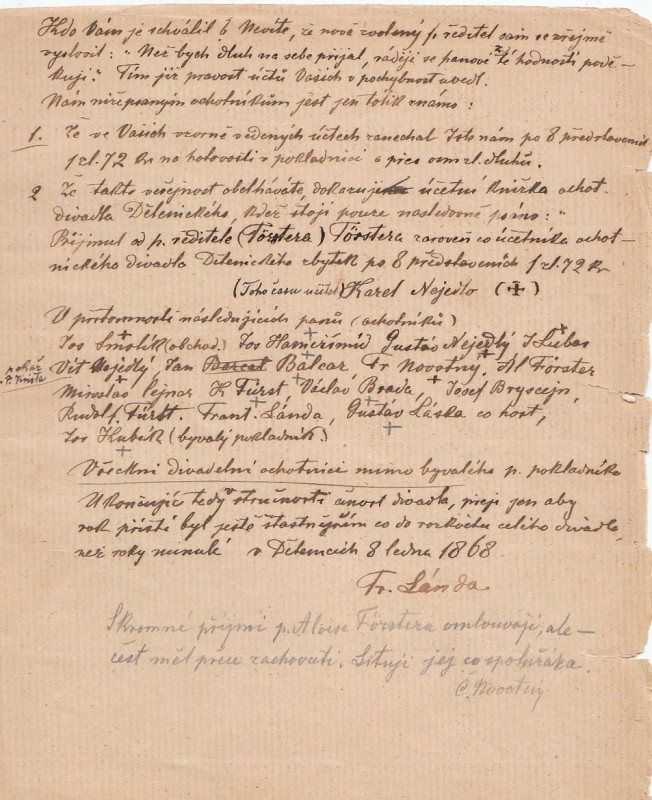 Kdo Vám je schválil? Nevíte, že nově zvolený p. ředitel sám se zřejmě
vyslovil: "Než bych dluh na sebe přijal, raději se panové z té hodnosti podě-
kuji." Tím již pravost účtů Vašich v pochybnost uvedl.
Nám níže psaným ochotníkům jest jen tolik známo:
1. Že ve Vašich vzorně vedených účtech zanechal Jste nám po 8 představeních
1 zl. 72 kr na hotovosti v pokladnici a přes osm zl. dluhů.
2 Že takto veřejnost obelháváte, dokazuje účetní knížka ochot.
divadla Dětenického, kdež stojí pouze následovně psáno: "
Přijmul od p. ředitele (Förstera) Förstera zároveň co účetníka ochot-
nického divadla Dětenického zbytek po 8 představeních 1 zl. 72 kr
(Toho času učitel) Karel Nejedlo (+)
V přítomnosti následujících pánů (ochotníků)
Jos Smolík (obchod.) Jos Hameršmíd Gustav Nejedlý J Lubas
Vít Nejedlý, Jan Barcal Balcar, Fr Novotný, Al Förster
pekař
Miroslav Pejnar K Fürst Václav Brada, Josef Bryscejn,
Rudolf Fürst. Frant. Lánda, Gustav Láska co host,
Jos Kubák (bývalý pokladník)
Všeckni divadelní ochotníci mimo bývalého p. pokladníka
Ukončujíc tedy v stručnosti činnost divadla, přeji jen aby
rok příští byl ještě šťastnějším co do rozkvětu celého divadla,
než roky minulé v Dětenicích 8 ledna 1868.
Fr. Lánda
Skromné příjmi p. Aloise Förstera omlouvají, ale-
čest měl přece zachovati. Lituji jej co spolužáka.
Č. Novotný